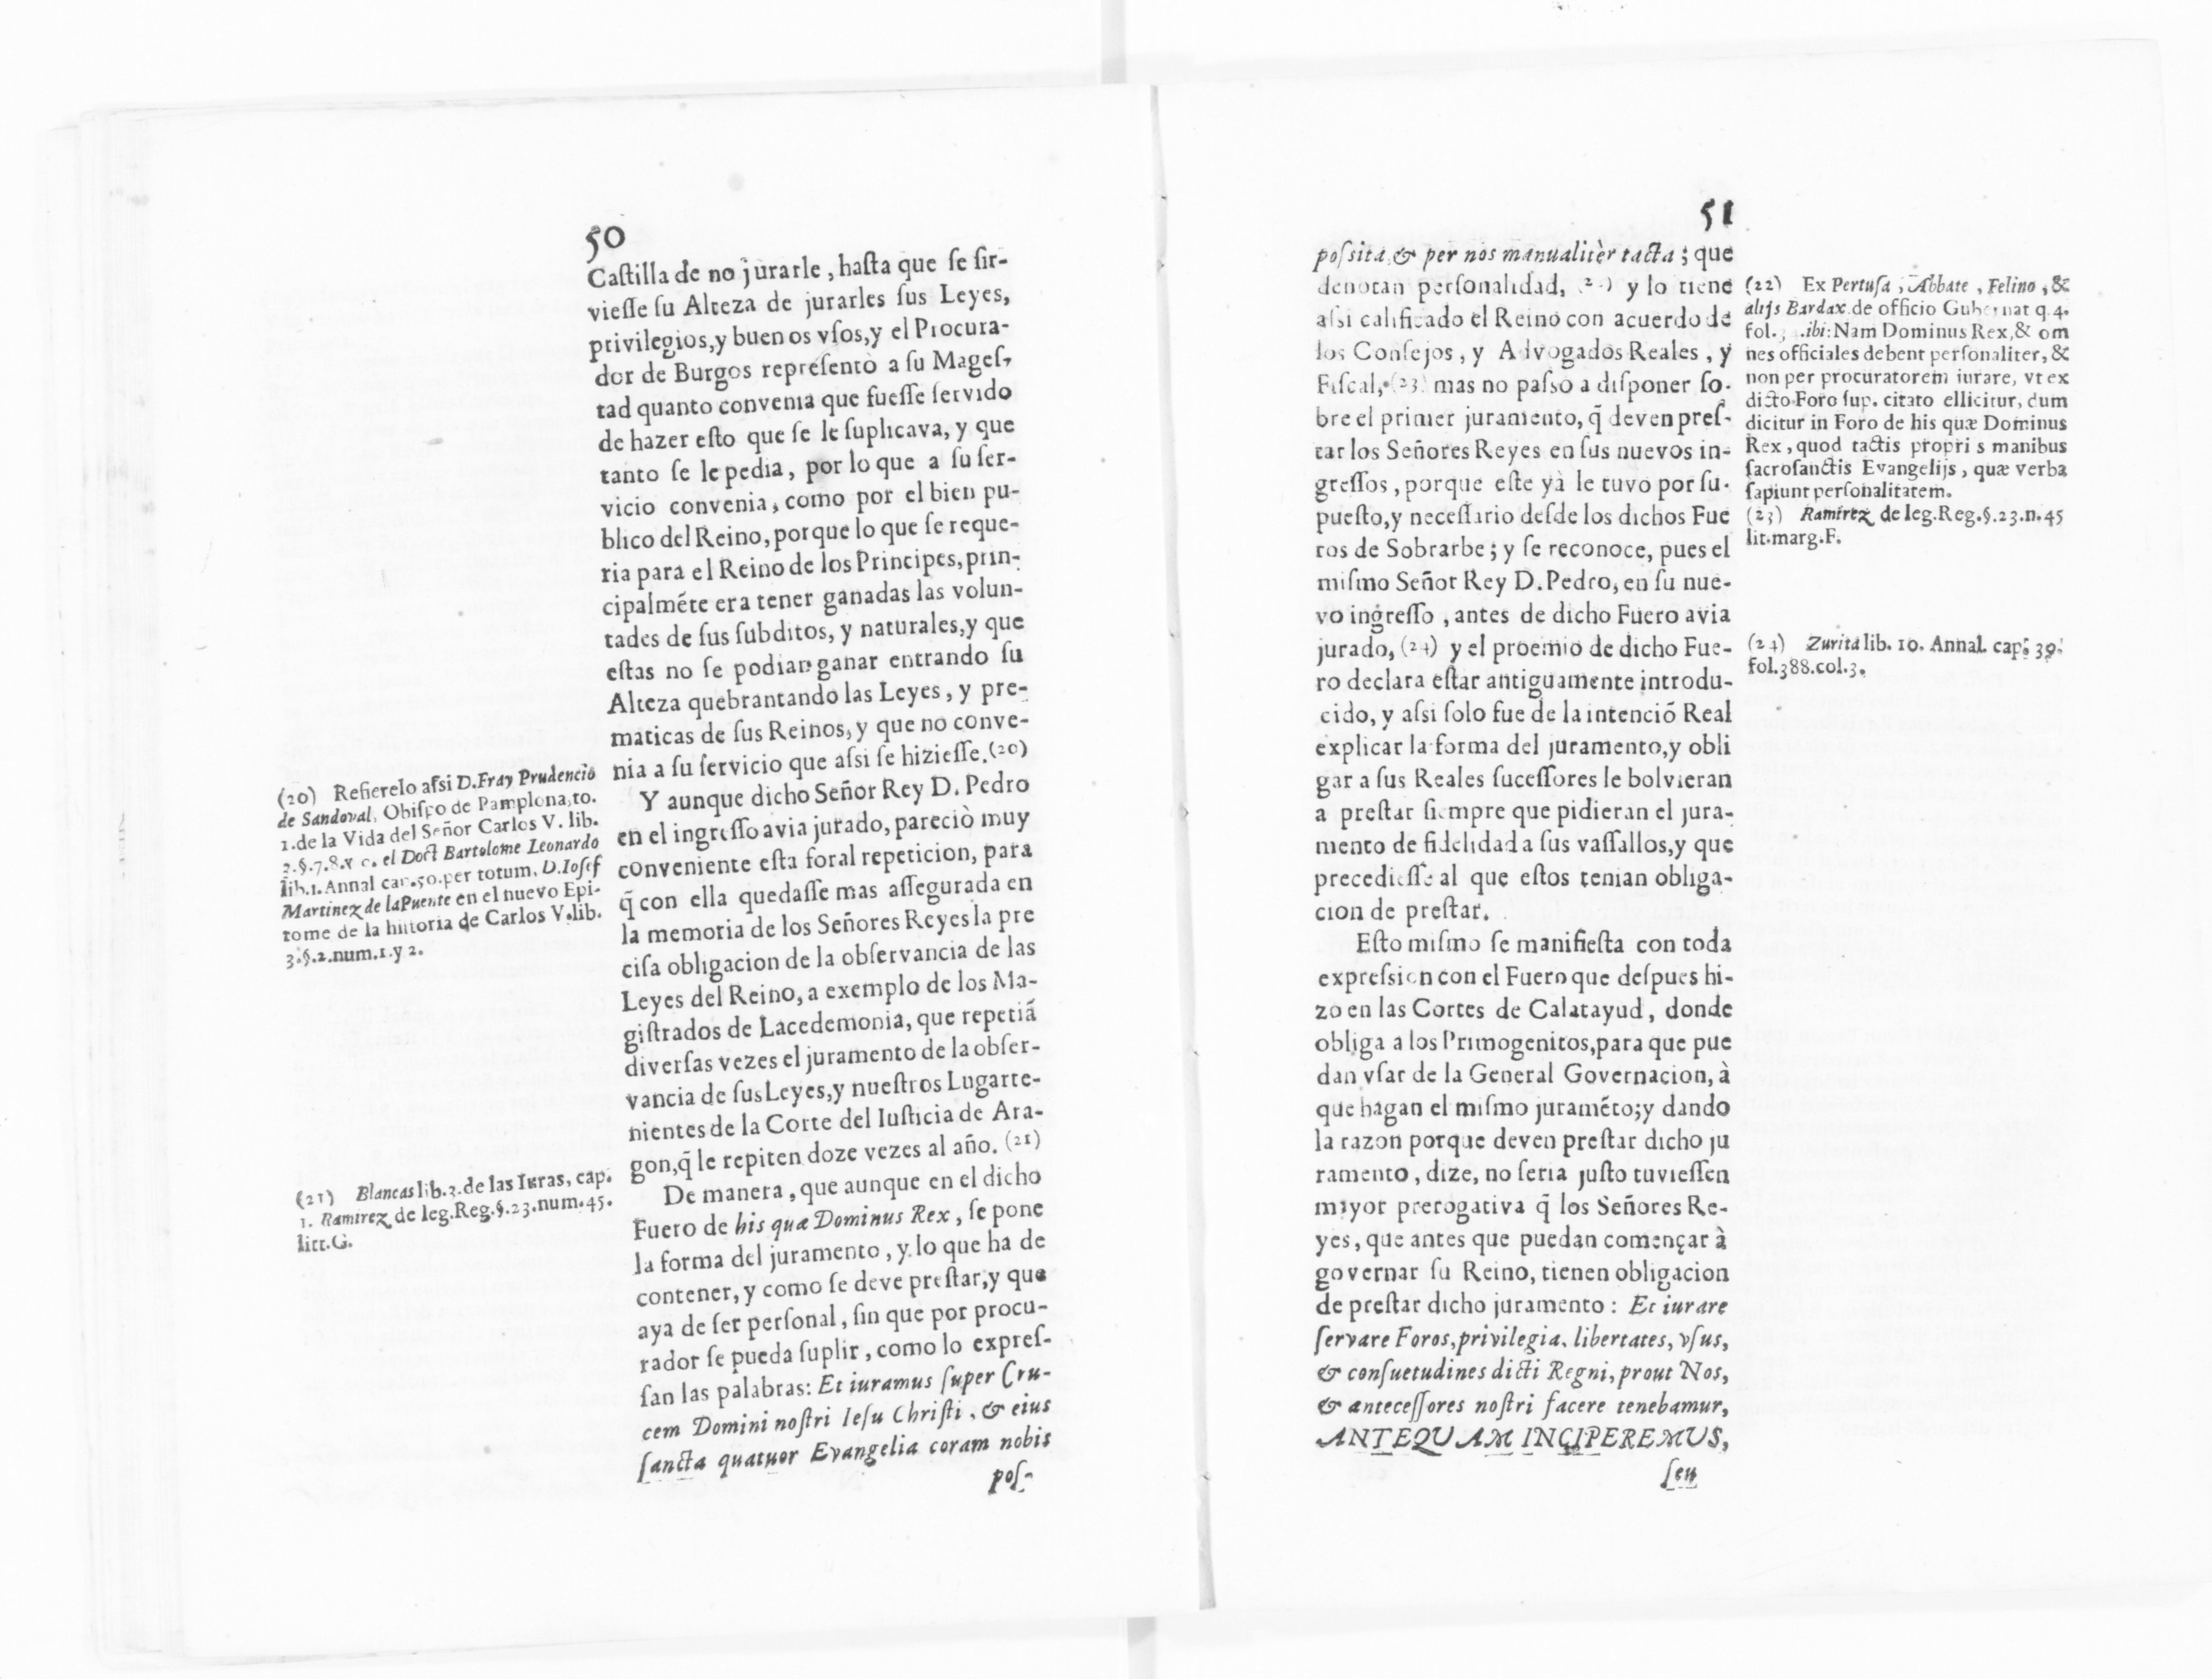 50
Caſtilla de no jurarle, haſta que ſe ſir-
vieſſe ſu Alteza de jurarles ſus Leyes,
privilegios,y buenos vſos,y el Procura-
dor de Burgos repreſentò a ſu Mageſ-
tad quanto convenia que fueſſe ſervido
de hazer eſto que ſe le ſuplicava, y que
tanto ſe le pedia, por lo que a ſu ſer-
vicio convenia, como por el bien pu-
blico del Reino, porque lo que ſe reque-
ria para el Reino de los Principes, prin-
cipalmẽte era tener ganadas las volun-
tades de ſus ſubditos, y naturales,y que
eſtas no ſe podian ganar entrando ſu
Alteza quebrantando las Leyes, y pre-
maticas de ſus Reinos, y que no conve-
nia a ſu ſervicio que aſsi ſe hizieſſe.(20)
Y aunque dicho Señor Rey D. Pedro
en el ingreſſo avia jurado, pareciò muy
conveniente eſta foral repeticion, para
q̃ con ella quedaſſe mas aſſegurada en
la memoria de los Señores Reyes la pre
ciſa obligacion de la obſervancia de las
Leyes del Reino, a exemplo de los Ma-
giſtrados de Lacedemonia, que repetiã
diverſas vezes el juramento de la obſer-
vancia de ſus Leyes,y nueſtros Lugarte-
nientes de la Corte del Iuſticia de Ara-
gon,q̃ le repiten doze vezes al año. (21)
De manera, que aunque en el dicho
Fuero de his quæ Dominus Rex, ſe pone
la forma del juramento, y lo que ha de
contener, y como ſe deve preſtar,y que
aya de ſer perſonal, ſin que por procu-
rador ſe pueda ſuplir, como lo expreſ-
ſan las palabras: Et iuramus ſuper Cru-
cem Domini noſtri Ieſu Chriſti, & eius
ſancta quatuor Evangelia coram nobis
poſ-
(20) Refierelo aſsi D. Fray Prudencio
de Sandoval, Obiſpo de Pamplona, to.
1. de la Vida del Señor Carlos V. lib.
2.§.7.8. el Doct Bartolome Leonardo
lib.1. Annal cap.50.per totum, D. Ioſef
Martinez de la Puente en el nuevo Epi-
tome de la hiſtoria de Carlos V. lib.
3.§.2.num.1.y 2.
(21) Blancas lib.3.de las Iuras, cap.
1. Ramirez de leg. Reg.§.23.num.45.
litt.G.
51
poſsita, & per nos manualitèr tacta; que
denotan perſonalidad, y lo tiene
aſsi calificado el Reino con acuerdo de
los Conſejos, y Advogados Reales, y
Fiſcal,(23) mas no paſsò a diſponer ſo-
bre el primer juramento, q̃ deven preſ-
tar los Señores Reyes en ſus nuevos in-
greſſos, porque eſte yà le tuvo por ſu-
pueſto,y neceſſario deſde los dichos Fue
ros de Sobrarbe; y ſe reconoce, pues el
miſmo Señor Rey D. Pedro, en ſu nue-
vo ingreſſo, antes de dicho Fuero avia
jurado, (24) y el proemio de dicho Fue-
ro declara eſtar antiguamente introdu-
cido, y aſsi ſolo fue de la intenciõ Real
explicar la forma del juramento,y obli
gar a ſus Reales ſuceſſores le bolvieran
a preſtar ſiempre que pidieran el jura-
mento de fidelidad a ſus vaſſallos,y que
precedieſſe al que eſtos tenian obliga-
cion de preſtar.
Eſto miſmo ſe manifieſta con toda
expreſsion con el Fuero que deſpues hi-
zo en las Cortes de Calatayud, donde
obliga a los Primogenitos,para que pue
dan vſar de la General Governacion, à
que hagan el miſmo juramẽto;y dando
la razon porque deven preſtar dicho ju
ramento, dize, no ſeria juſto tuvieſſen
mayor prerogativa q̃ los Señores Re-
yes, que antes que puedan començar à
governar ſu Reino, tienen obligacion
de preſtar dicho juramento: Et iurare
ſervare Foros, privilegia, libertates, vſus,
& conſuetudines dicti Regni, prout Nos,
& anteceſſores noſtri facere tenebamur,
ANTEQUAM INCIPEREMUS,
ſeu
(22) Ex Pertuſa, Abbate, Felino, &
alijs Bardax de officio Gubernat q.4.
fol. ibi: Nam Dominus Rex, & om
nes officiales debent perſonaliter, &
non per procuratorem iurare, vt ex
dicto Foro ſup. citato ellicitur, dum
dicitur in Foro de his quæ Dominus
Rex, quod tactis propri s manibus
ſacroſanctis Evangelijs, quæ verba
ſapiunt perſonalitatem.
(23) Ramirez de leg.Reg.§.23.n.45
lit.marg.F.
(24) Zurita lib. 10. Annal. cap. 39.
fol.388.col.3.